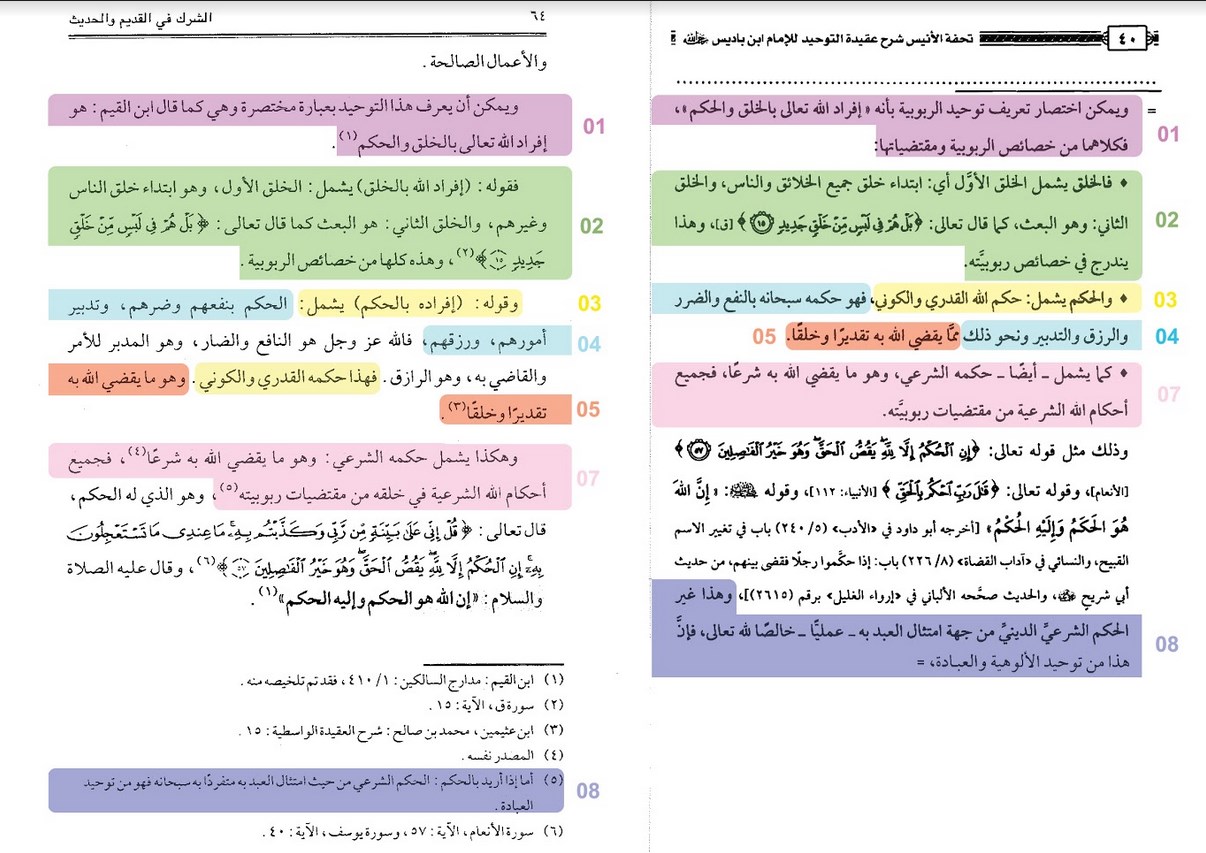 ٤٠
تحفة الأنيس شرح عقيدة التوحيد للإمام ابن باديس رحمه الله
= ويمكن اختصار تعريف توحيد الربوبية بأنه «إفراد الله تعالى بالخلق والحكم»،
01
فكلاهما من خصائص الربوبية ومقتضياتها:
♦ فالخلق يشمل الخلق الأوَّل أي: ابتداء خلق جميع الخلائق والناس، والخلق
02
الثاني: وهو البعث، كما قال تعالى: ﴿بَلْ هُمْ فِي لَبْسٍ مِّنْ خَلْقٍ جَدِيدٍ ١٥﴾ [ق]، وهذا
يندرج في خصائص ربوبيَّته.
♦ والحكم يشمل: حكم الله القدري والكوني، فهو حكمه سبحانه بالنفع والضرر
03
والرزق والتدبير ونحو ذلك ممَّا يقضي الله به تقديرًا وخلقًا.
04
05
♦ كما يشمل ـ أيضًا ـ حكمه الشرعي، وهو ما يقضي الله به شرعًا، فجميع
07
أحكام الله الشرعية من مقتضيات ربوبيَّته.
وذلك مثل قوله تعالى: ﴿إِنِ الْحُكْمُ إِلَّا لِلَّهِ يَقُصُّ الْحَقَّ وَهُوَ خَيْرُ الْفَاصِلِينَ ٥٧﴾
[الأنعام]، وقوله تعالى: ﴿قَالَ رَبِّ احْكُم بِالْحَقِّ﴾ [الأنبياء: ١١٢]، وقوله ﷺ: «إِنَّ اللهَ
هُوَ الحَكَمُ وَإِلَيْهِ الحُكْمُ» [أخرجه أبو داود في «الأدب» (٥/ ٢٤٠) باب في تغيير الاسم
القبيح، والنسائي في «آداب القضاة» (٨/ ٢٢٦) باب: إذا حكَّموا رجلًا فقضى بينهم، من حديث
أبي شريح رضي الله عنه، والحديث صحَّحه الألباني في «إرواء الغليل» برقم (٢٦١٥)]، وهذا غير
الحكم الشرعيِّ الدينيِّ من جهة امتثال العبد به ـ عمليًّا ـ خالصًا لله تعالى، فإنَّ
08
هذا من توحيد الألوهية والعبادة، =
٦٤
الشرك في القديم والحديث
والأعمال الصالحة .
ويمكن أن يعرف هذا التوحيد بعبارة مختصرة وهي كما قال ابن القيم : هو
01
إفراد الله تعالى بالخلق والحكم(١) .
فقوله : (إفراد الله بالخلق) يشمل : الخلق الأول، وهو ابتداء خلق الناس
02
وغيرهم، والخلق الثاني : هو البعث كما قال تعالى : ﴿بَلْ هُمْ فِي لَبْسٍ مِّنْ خَلْقٍ
جَدِيدٍ ١٥﴾(٢)، وهذه كلها من خصائص الربوبية .
وقوله : (إفراده بالحكم) يشمل : الحكم بنفعهم وضرهم، وتدبير
03
أمورهم، ورزقهم، فالله عز وجل هو النافع والضار، وهو المدبر للأمر
04
والقاضي به، وهو الرازق . فهذا حكمه القدري والكوني . وهو ما يقضي الله به
تقديرًا وخلقًا(٣) .
05
وهكذا يشمل حكمه الشرعي : وهو ما يقضي الله به شرعًا(٤)، فجميع
07
أحكام الله الشرعية في خلقه من مقتضيات ربوبيته(٥)، وهو الذي له الحكم،
قال تعالى : ﴿قُلْ إِنِّي عَلَىٰ بَيِّنَةٍ مِّن رَّبِّي وَكَذَّبْتُم بِهِ مَا عِندِي مَا تَسْتَعْجِلُونَ
بِهِ إِنِ الْحُكْمُ إِلَّا لِلَّهِ يَقُصُّ الْحَقَّ وَهُوَ خَيْرُ الْفَاصِلِينَ ٥٧﴾(٦)، وقال عليه الصلاة
والسلام : «إن الله هو الحكم وإليه الحكم»(١) .
(١) ابن القيم : مدارج السالكين : ١/ ٤١٠، فقد تم تلخيصه منه .
(٢) سورة ق، الآية : ١٥ .
(٣) ابن عثيمين، محمد بن صالح : شرح العقيدة الواسطية : ١٥ .
(٤) المصدر نفسه .
(٥) أما إذا أريد بالحكم : الحكم الشرعي من حيث امتثال العبد به متفردًا به سبحانه فهو من توحيد
08
العبادة .
(٦) سورة الأنعام، الآية : ٥٧، وسورة يوسف، الآية : ٤٠ .